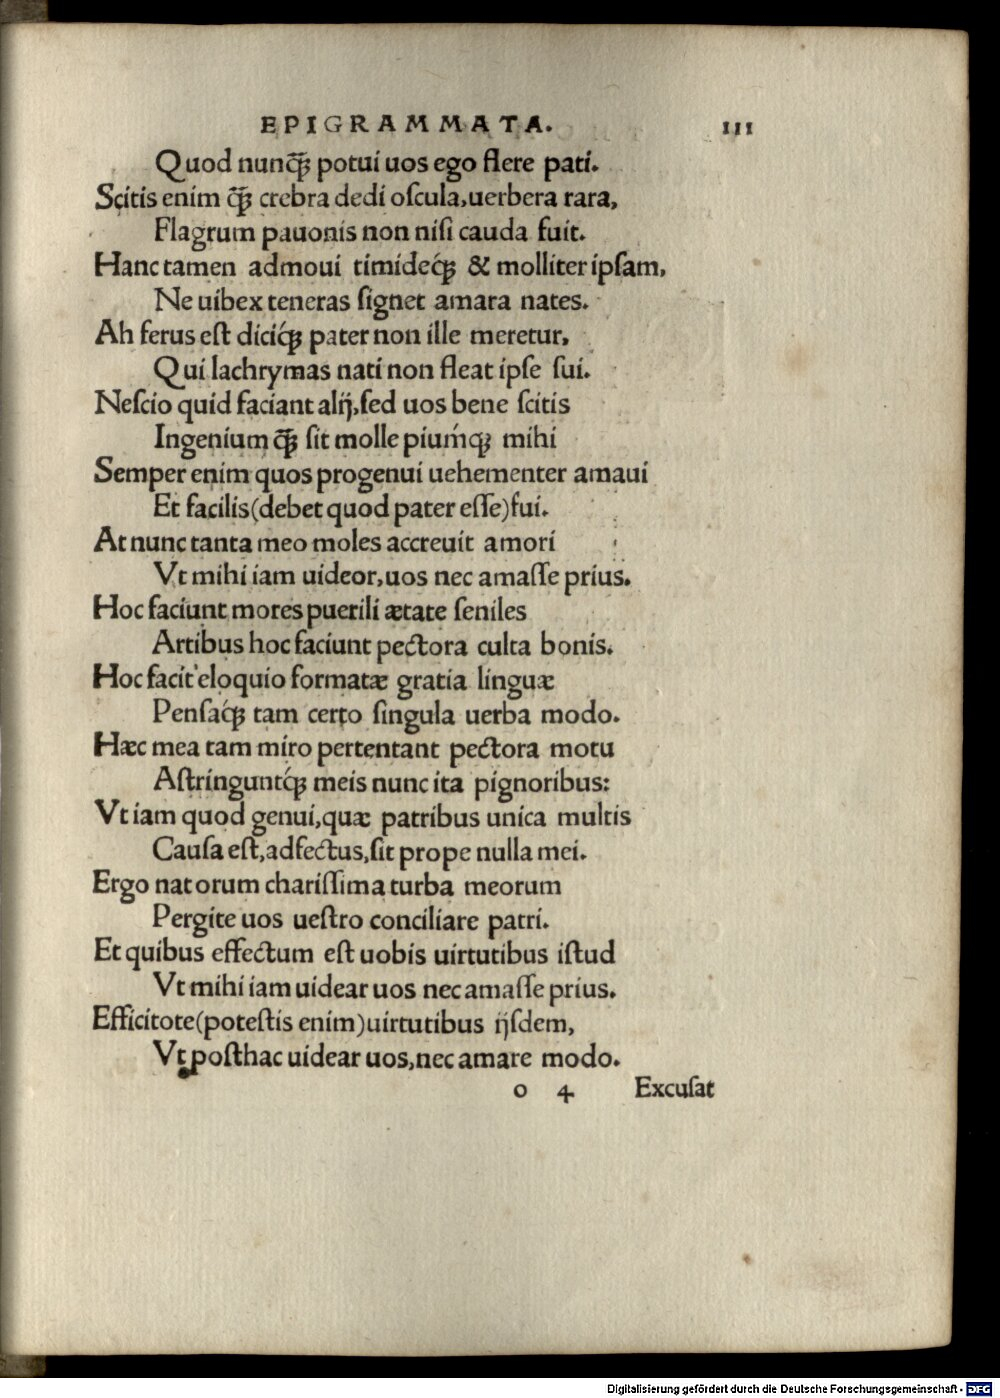 EPIGRAMMATA. 111
Quod nunꝗ̃ potui uos ego flere pati.
Scitis enim ꝗ̃ crebra dedi oſcula,uerbera rara,
Flagrum pauonis non niſi cauda fuit.
Hanc tamen admoui timideq́ꝫ & molliter ipſam,
Ne uibex teneras ſignet amara nates.
Ah ferus eſt diciq́ꝫ pater non ille meretur,
Qui lachrymas nati non fleat ipſe ſui.
Neſcio quid faciant alij,ſed uos bene ſcitis
Ingenium ꝗ̃ ſit molle piumq́ꝫ mihi
Semper enim quos progenui uehementer amaui
Et facilis(debet quod pater eſſe)fui.
At nunc tanta meo moles accreuit amori
Vt mihi iam uideor,uos nec amaſſe prius.
Hoc faciunt mores puerili ætate ſeniles
Artibus hoc faciunt pectora culta bonis.
Hoc facit eloquio formatæ gratia linguæ
Penſaq́ꝫ tam certo ſingula uerba modo.
Hæc mea tam miro pertentant pectora motu
Aſtringuntq́ꝫ meis nunc ita pignoribus:
Vt iam quod genui,quæ patribus unica multis
Cauſa eſt,adfectus,ſit prope nulla mei.
Ergo natorum chariſſima turba meorum
Pergite uos ueſtro conciliare patri.
Et quibus effectum eſt uobis uirtutibus iſtud
Vt mihi iam uidear uos nec amaſſe prius.
Efficitote(poteſtis enim)uirtutibus ijſdem,
Vt poſthac uidear uos,nec amare modo.
o 4 Excuſat
Digitalisierung gefördert durch die Deutsche Forschungsgemeinschaft - DFG